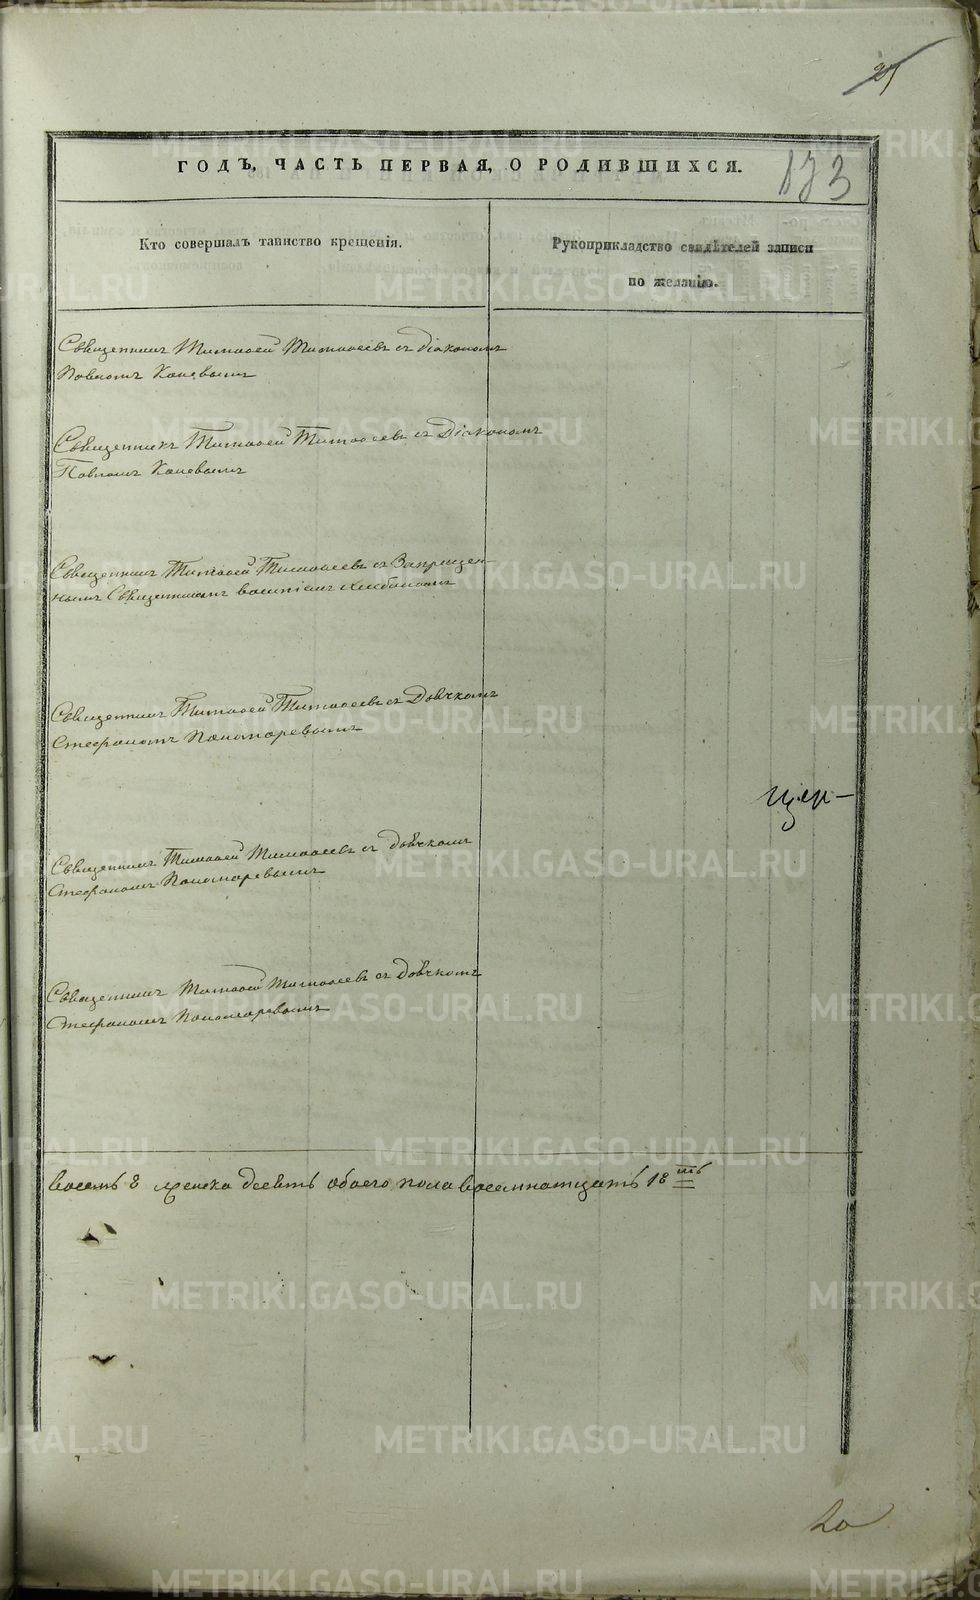 27
ГОДЪ, ЧАСТЬ ПЕРВАЯ, О РОДИВШИХСЯ.
173
Кто совершалъ таинство крещенія.
Рукоприкладство свидѣтелей записи
по желанію.
Священникъ Тимофей Тимофеевъ съ Діакономъ
Павломъ Каневымъ
Священникъ Тимофей Тимофеевъ съ Діакономъ
Павломъ Каневымъ
Священникъ Тимофей Тимофеевъ съ Запрещен-
нымъ Священникомъ
Священникъ Тимофей Тимофеевъ съ Дьячкомъ
Стефаномъ Пономаревымъ
цер-
Священникъ Тимофей Тимофеевъ съ Дьячкомъ
Стефаномъ Пономаревымъ
Священникъ Тимофей Тимофеевъ съ Дьячкомъ
Стефаномъ Пономаревымъ
восемь 8 женска девять обоего пола восемнатцать 18ть
20
METRIKI.GASO-URAL.RU